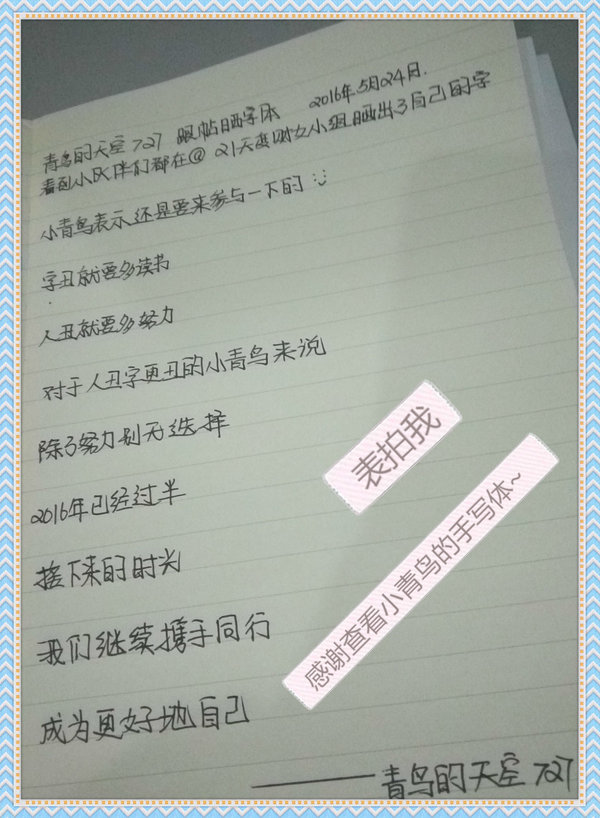 青鸟的天空727 跟帖晒字体 2016年5月24日.
看到小伙伴们都在@21天变财女小组晒出了自己的字
小青鸟表示还是要来参与一下的
字丑就要多读书
人丑就要多努力
对于人丑字更丑的小青鸟来说
除了努力别无选择
2016年已经过半
接下来的时光
我们继续携手同行
成为更好地自己
——青鸟的天空727
表拍我
感谢查看小青鸟的手写体~